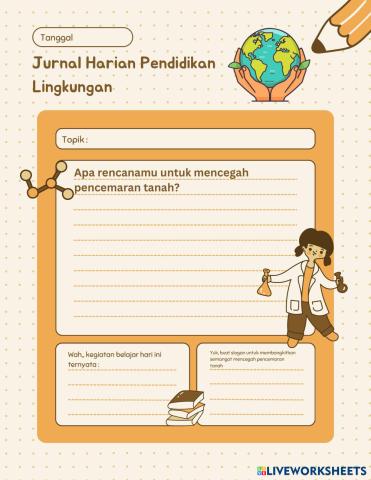 Tanggal
Jurnal Harian Pendidikan
Lingkungan
Topik :
Apa rencanamu untuk mencegah
pencemaran tanah?
Wah, kegiatan belajar hari ini
ternyata :
Yuk, buat slogan untuk membangkitkan
semangat mencegah pencemaran
tanah
LIVEWORKSHEETS